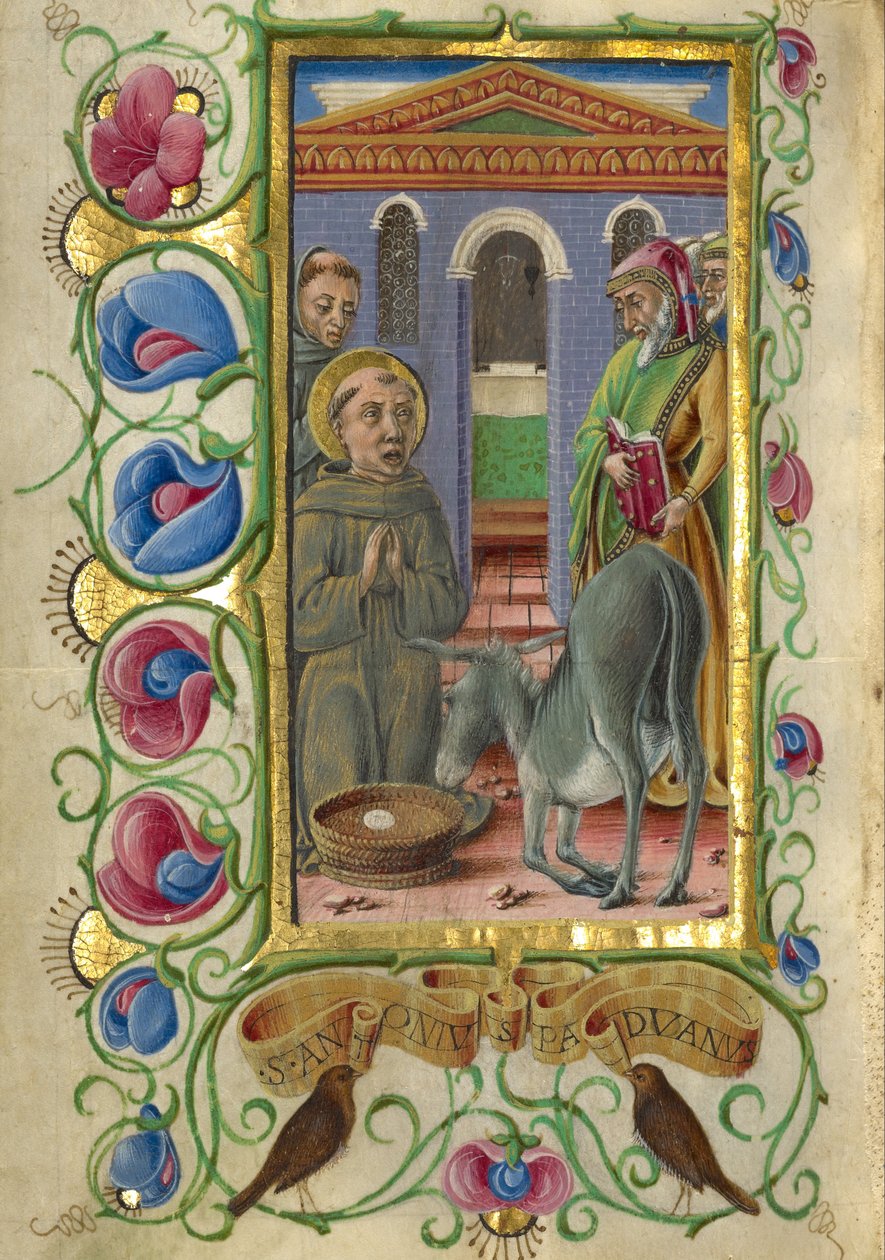 ·S·ANTONIVS PADVANVS